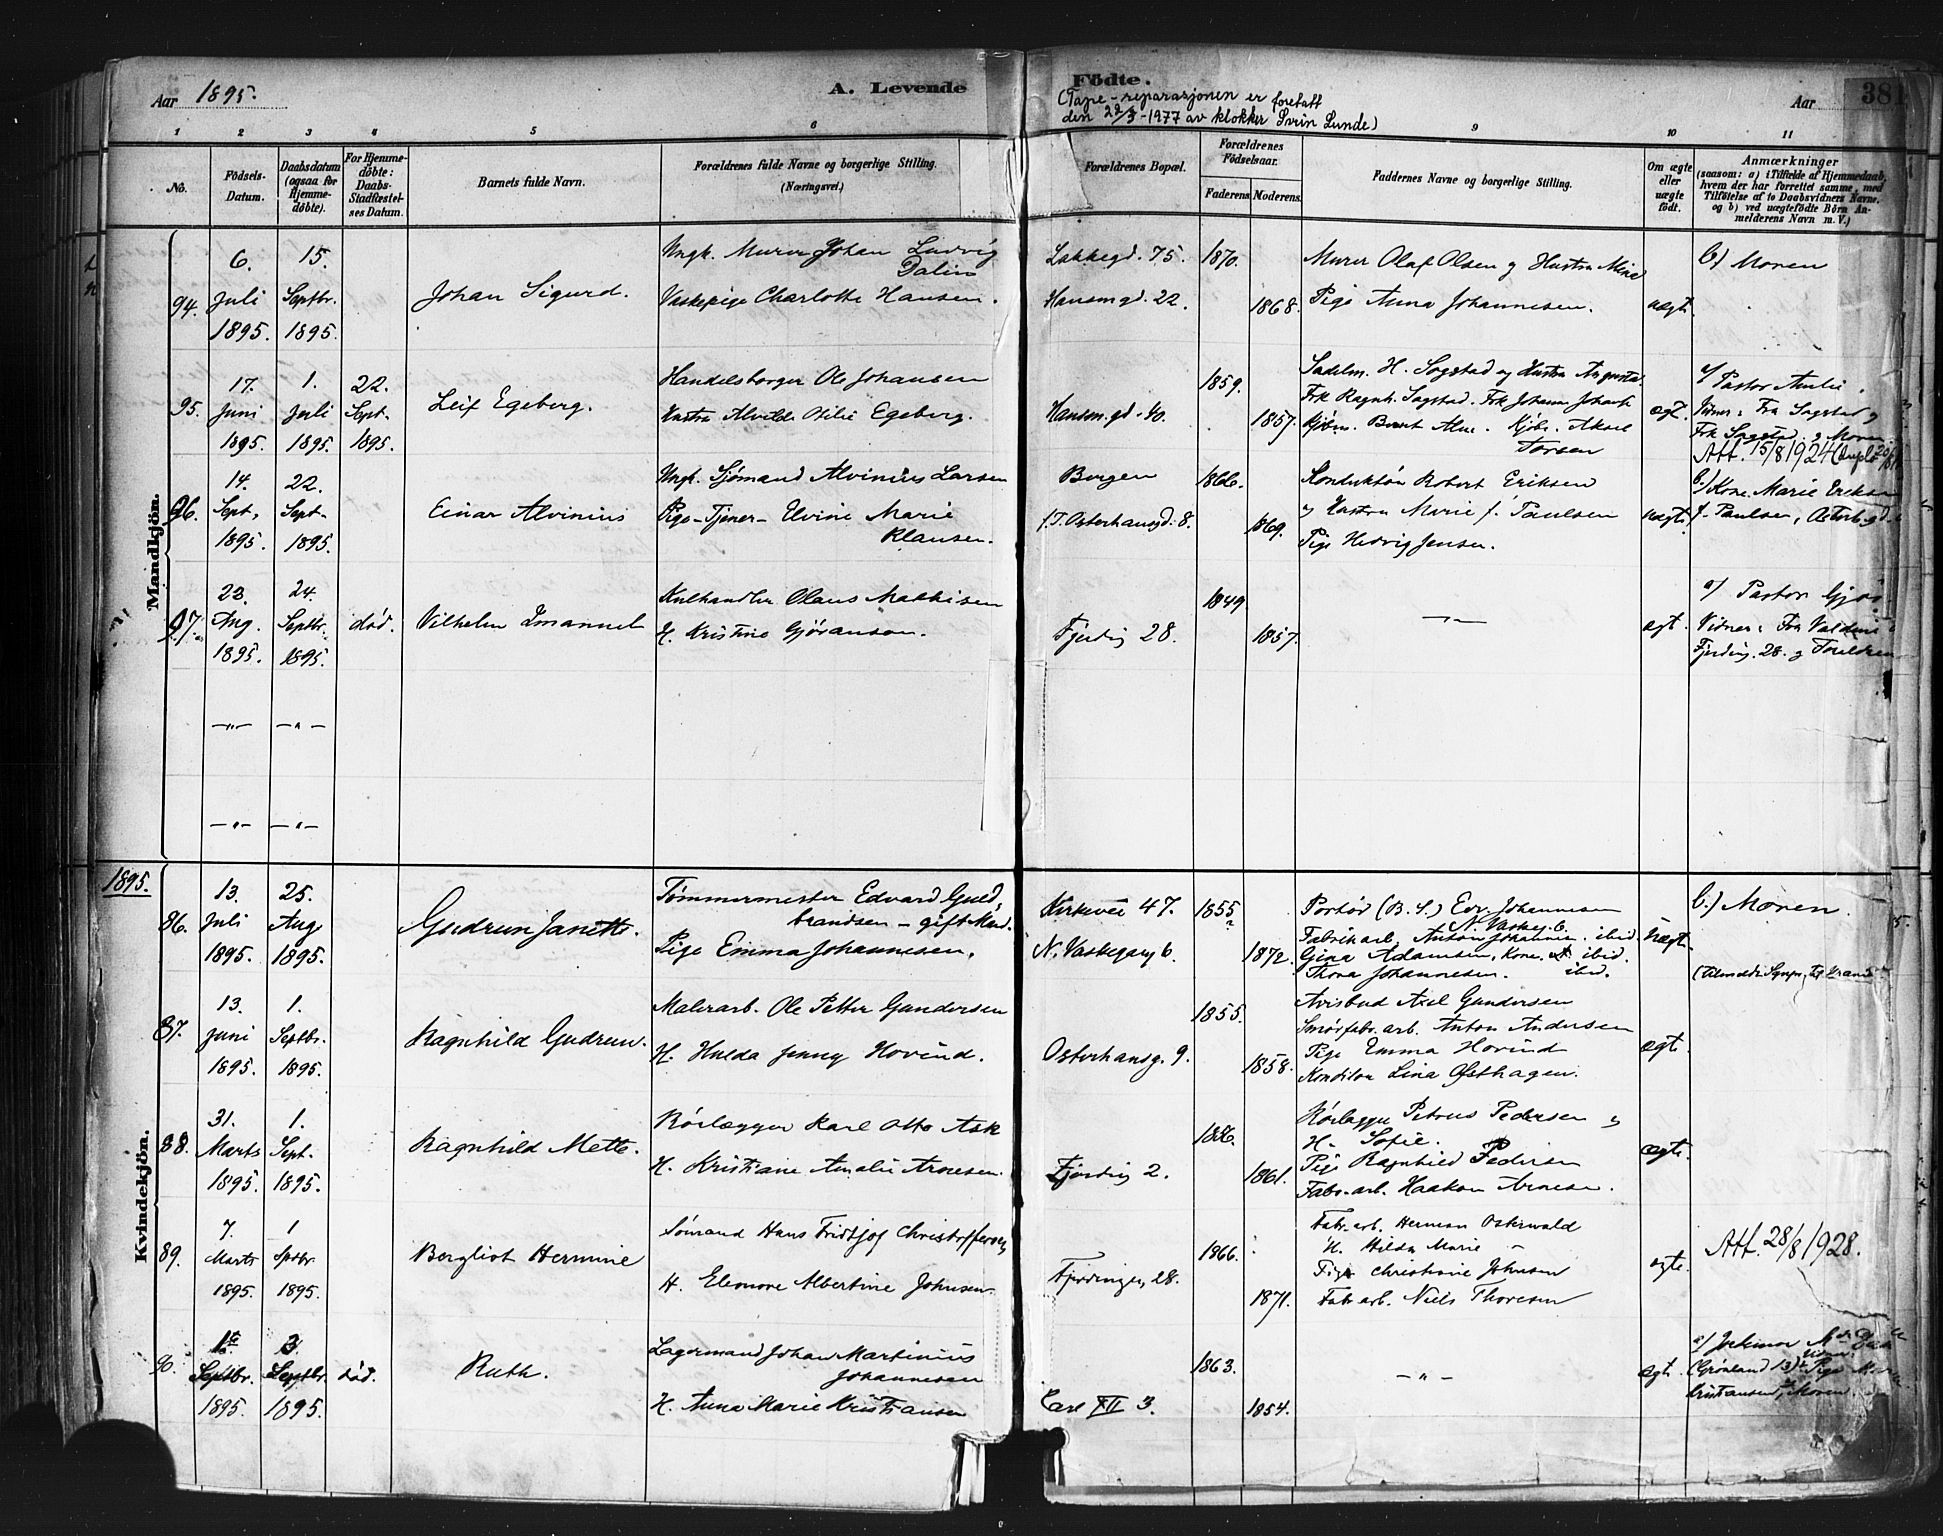 Aar 1895.
A. Levende Födte.
(Tape-reparasjonen er foretatt
den 22/3-1977 av klokker Svein Lunde)
Aar
381
1 2 3 4 5 6 9 10 11
No.
Födsels-Datum.
Daabsdatum (ogsaa for Hjemme-döbte).
For Hjemme-döbte: Daabs-Stadfæstel-ses Datum.
Barnets fulde Navn.
Forældrenes fulde Navne og borgerlige Stilling.
(Næringsvei.)
Forældrenes Bopæl.
Forældrenes Födselsaar.
Faderens Moderens.
Faddernes Navne og borgerlige Stilling.
Om ægte eller uægte födt.
Anmærkninger
(saasom: a) i Tilfælde af Hjemmedaab,
hvem der har forrettet samme, med
Tilföielse af to Daabsvidners Navne.
og b) ved uægtefödte Börn An-
melderens Navn m. V.)
Mandkjön.
94. 6. Juli 1895. 15. Septbr. 1895.
Johan Sigurd.
Ungk. Murer Johan Ludvig Dalin
Vaskepige Charlotte Hansen.
Lakkegd. 75. 1870.
Hausmgd. 22. 1868.
Murer Olaf Olsen og Hustru
Pige Anna Johannesen.
uægt.
b) Moren
95. 17. Juni 1895. 1. Juli 1895. 22. Sept. 1895.
Leif Egeberg.
Handelsborger Ole Johansen
Hustru Alvilde Otilie Egeberg.
Hausm. gd. 40.
1859. 1857.
Sadelm. H. Sogstad og Hustru Augusta
Frk Ragnh. Sagstad. Frk Johanne
Kjøbm. Kjøb. Aksel
Torsen
ægt.
a/ Pastor
Vidner: Fru Sagstad og
Frk Sagstad og Moren.
Att. 15/8 1924
96. 14. Sept. 1895. 22. Sept. 1895.
Einar Alvinius
Ungk. Sjømand Alvinius Larsen
Pige-Tjener- Elvine Marie
Klausen.
Bergen 1866.
f. T. Osterhausgd. 8. 1869.
Konduktør Robert Eriksen
og Hustru Marie f. Paulsen
Pige Hedvig Jensen.
uægte
b.) Kone Marie Eriksen
f. Paulsen,
97. 23. Aug. 1895. 24. Septbr. 1895. død.
Vilhelm Imanuel
Kulhandler Olaus Mathisen
H. Kristine Gjøranson.
Fjerdig 28. 1849 1857.
—"—
ægt.
a/ Pastor
Vidner: Fru
Fjerding. 28. og Foreldrene
—"— —"—
—"— —"—
1895.
Kvindekjön.
86. 13. Juli 1895. 25. Aug. 1895.
Gudrun Janette.
Tømmermester Edvard Guld,
brandsen – gift Mand.
Pige Emma Johannesen.
Kirkevei 47. 1855
N. Vaskegang 6. 1872.
Portør (B. S.) Edv. Johannesen
N. Vaskeg. 6.
Fabrikarb. Anton Johannesen. ibid.
Gina Adamsen, Kone. ibid.
Thora Johannesen. ibid.
uægte
b.) Moren.
87. 13. Juni 1895. 1. Septbr. 1895.
Ragnhild Gudrun.
Malerarb. Ole Petter Gundersen
H. Hulda Jenny Hovind.
Osterhausg. 9.
1855. 1858.
Avisbud Axel Gundersen
Smørfabr. arb. Anton Andersen
Pige Emma Hovind
Konditor Lina Østhagen.
ægte.
88. 31. Marts 1895. 1. Sept. 1895.
Ragnhild Mette.
Rørlægger Karl Otto Ask
H. Kristiane Amalie Arnesen.
Fjerdig 2.
1856. 1861.
Rørlægger Petrus Pedersen og
H. Sofie.
Pige Ragnhild Pedersen
Fabr. arb. Haakon Arnesen.
ægte.
89. 7. Marts 1895. 1 Sptbr. 1895.
Bergliot Hermine
Sømand Hans Fridtjof Christoffersen
H. Eleonore Albertine Johnsen
Fjerdingen 28.
1866. 1871.
Fabr. arb. Herman Osterwald
H. Hilda Marie —
Pige Christiane Johnsen
Fabr. arb. Niels Thoresen
ægte.
Att. 28/8 1928.
90. 1ste Septbr. 1895. 3. Septbr. 1895. død.
Ruth.
Lagermand Johan Martinius
Johannesen
H. Anna Marie Kristiansen
Carl XII 3.
1863. 1854.
—"—
ægt.
a/ Jordmor
(Grønland 13)
Kristiansen, Moren.